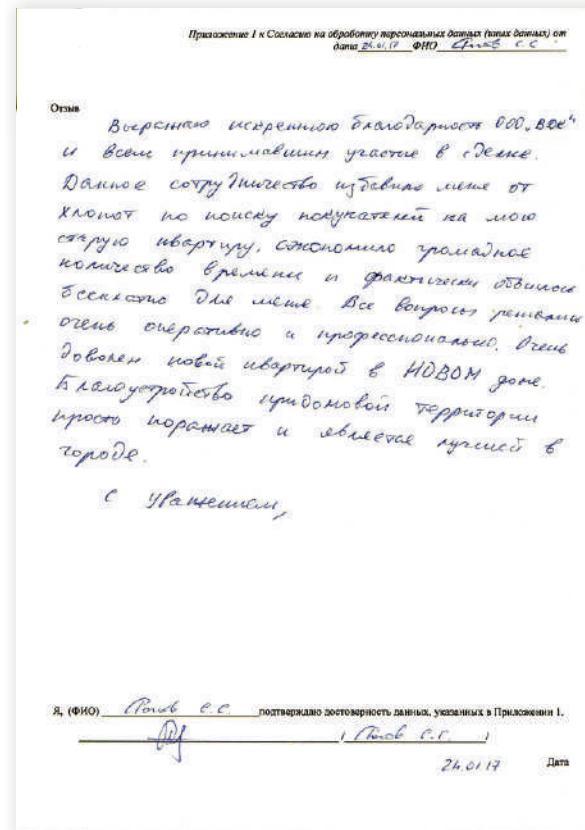 Приложение 1 к Согласию на обработку персональных данных (иных данных) от
дата 24.01.17 ФИО С.С.
Отзыв
Выражаю искреннюю благодарность ООО „ВДК“
и всем принимавшим участие в сделке.
Данное сотрудничество избавило меня от
хлопот по поиску покупателей на мою
старую квартиру, сэкономило громадное
количество времени и фактически обошлось
бесплатно для меня. Все вопросы решались
очень оперативно и профессионально. Очень
доволен новой квартирой в НОВОМ доме.
Благоустройство придомовой территории
просто поражает и является лучшей в
городе.
С уважением,
Я, (ФИО) Попов С.С. подтверждаю достоверность данных, указанных в Приложении 1.
( Попов С.С. )
24.01.17 Дата